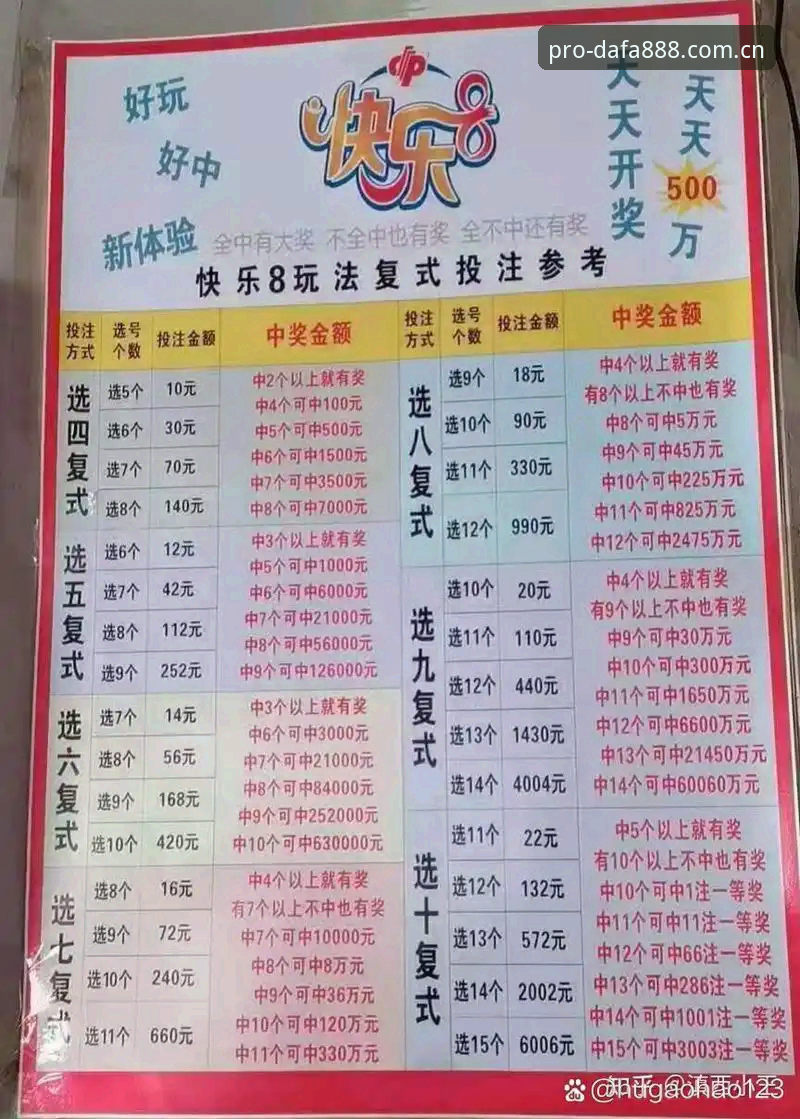 pro-dafa888.com.cn
好玩
好中
新体验
快乐8
天天开奖
天天
500
万
全中有大奖 不全中也有奖 全不中还有奖
快乐8玩法复式投注参考
投注方式 选号个数 投注金额 中奖金额
选四复式
选5个 10元
选6个 30元
选7个 70元
选8个 140元
中2个以上就有奖
中4个可中100元
中5个可中500元
中6个可中1500元
中7个可中3500元
中8个可中7000元
选五复式
选6个 12元
选7个 42元
选8个 112元
选9个 252元
中3个以上就有奖
中5个可中1000元
中6个可中6000元
中7个可中21000元
中8个可中56000元
中9个可中126000元
选六复式
选7个 14元
选8个 56元
选9个 168元
选10个 420元
中3个以上就有奖
中6个可中3000元
中7个可中21000元
中8个可中84000元
中9个可中252000元
中10个可中630000元
选七复式
选8个 16元
选9个 72元
选10个 240元
选11个 660元
中4个以上就有奖
有7个以上不中也有奖
中7个可中10000元
中8个可中8万元
中9个可中36万元
中10个可中120万元
中11个可中330万元
投注方式 选号个数 投注金额 中奖金额
选八复式
选9个 18元
选10个 90元
选11个 330元
选12个 990元
中4个以上就有奖
有8个以上不中也有奖
中8个可中5万元
中9个可中45万元
中10个可中225万元
中11个可中825万元
中12个可中2475万元
选九复式
选10个 20元
选11个 110元
选12个 440元
选13个 1430元
选14个 4004元
中4个以上就有奖
有9个以上不中也有奖
中9个可中30万元
中10个可中300万元
中11个可中1650万元
中12个可中6600万元
中13个可中21450万元
中14个可中60060万元
选十复式
选11个 22元
选12个 132元
选13个 572元
选14个 2002元
选15个 6006元
中5个以上就有奖
有10个以上不中也有奖
中10个可中1注一等奖
中11个可中11注一等奖
中12个可中66注一等奖
中13个可中286注一等奖
中14个可中1001注一等奖
中15个可中3003注一等奖